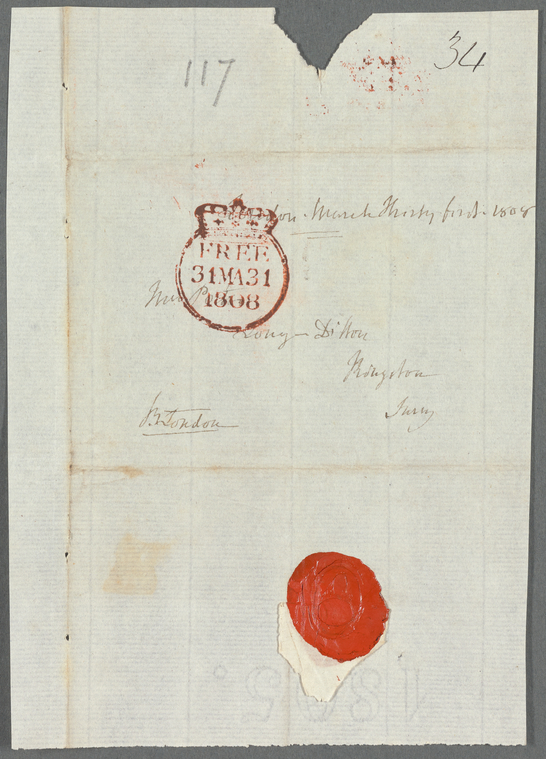 117
34
London March Thirty first 1808
FREE
31MA31
1808
Long Ditton
Kingston
Surry
London
1805